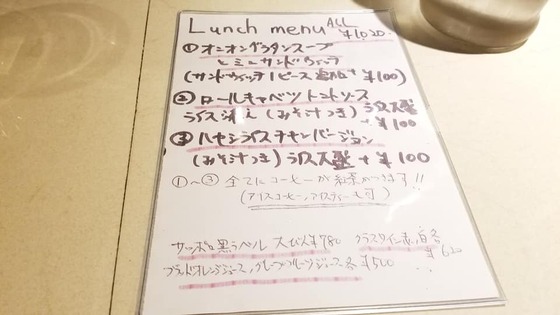 Lunch menu ALL ¥1020
① オニオングラタンスープ
とミニサンドウィッチ
(サンドウィッチ1ピース追加 + ¥100)
② ロールキャベツ トマトソース
ライス添え (みそ汁つき) ライス大盛 + ¥100
③ ハヤシライス チキンバージョン
(みそ汁つき) ライス大盛 + ¥100
①〜③ 全てにコーヒーか紅茶がつきます!!
(アイスコーヒー, アイスティーも可)
サッポロ黒ラベル 大びん ¥780 グラスワイン 赤, 白 各 ¥620
ブラッドオレンジジュース, グレープフルーツジュース 各 ¥500